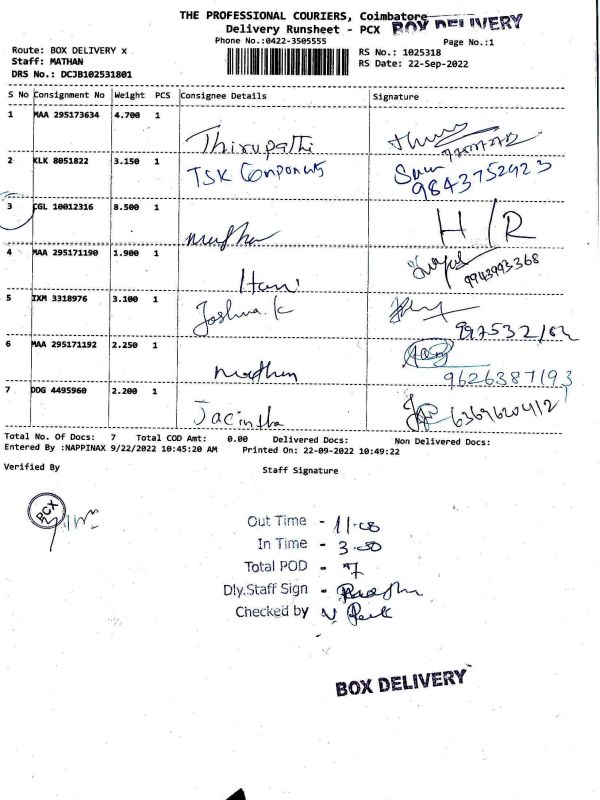 THE PROFESSIONAL COURIERS, Coimbatore
BOX DELIVERY
Delivery Runsheet - PCX
Phone No.:0422-3505555
Page No.:1
Route: BOX DELIVERY x
RS No.: 1025318
Staff: MATHAN
RS Date: 22-Sep-2022
DRS No.: DCJB102531801
S No Consignment No Weight PCS Consignee Details Signature
1 MAA 295173634 4.700 1 Thirupathi
2 KLK 8051822 3.150 1 TSK Components
9843752923
3 CGL 10012316 8.500 1 H/R
4 MAA 295171190 1.900 1 Hari
9943993368
5 IXM 3318976 3.100 1 Joshua.K
6 MAA 295171192 2.250 1
9626387193
7 DDG 4495960 2.200 1 Jacintha
6369620412
Total No. Of Docs: 7 Total COD Amt: 0.00 Delivered Docs: Non Delivered Docs:
Entered By :NAPPINAX 9/22/2022 10:45:20 AM Printed On: 22-09-2022 10:49:22
Verified By Staff Signature
PCX
Out Time - 11.08
In Time -
Total POD - 7
Dly.Staff Sign -
Checked by
BOX DELIVERY